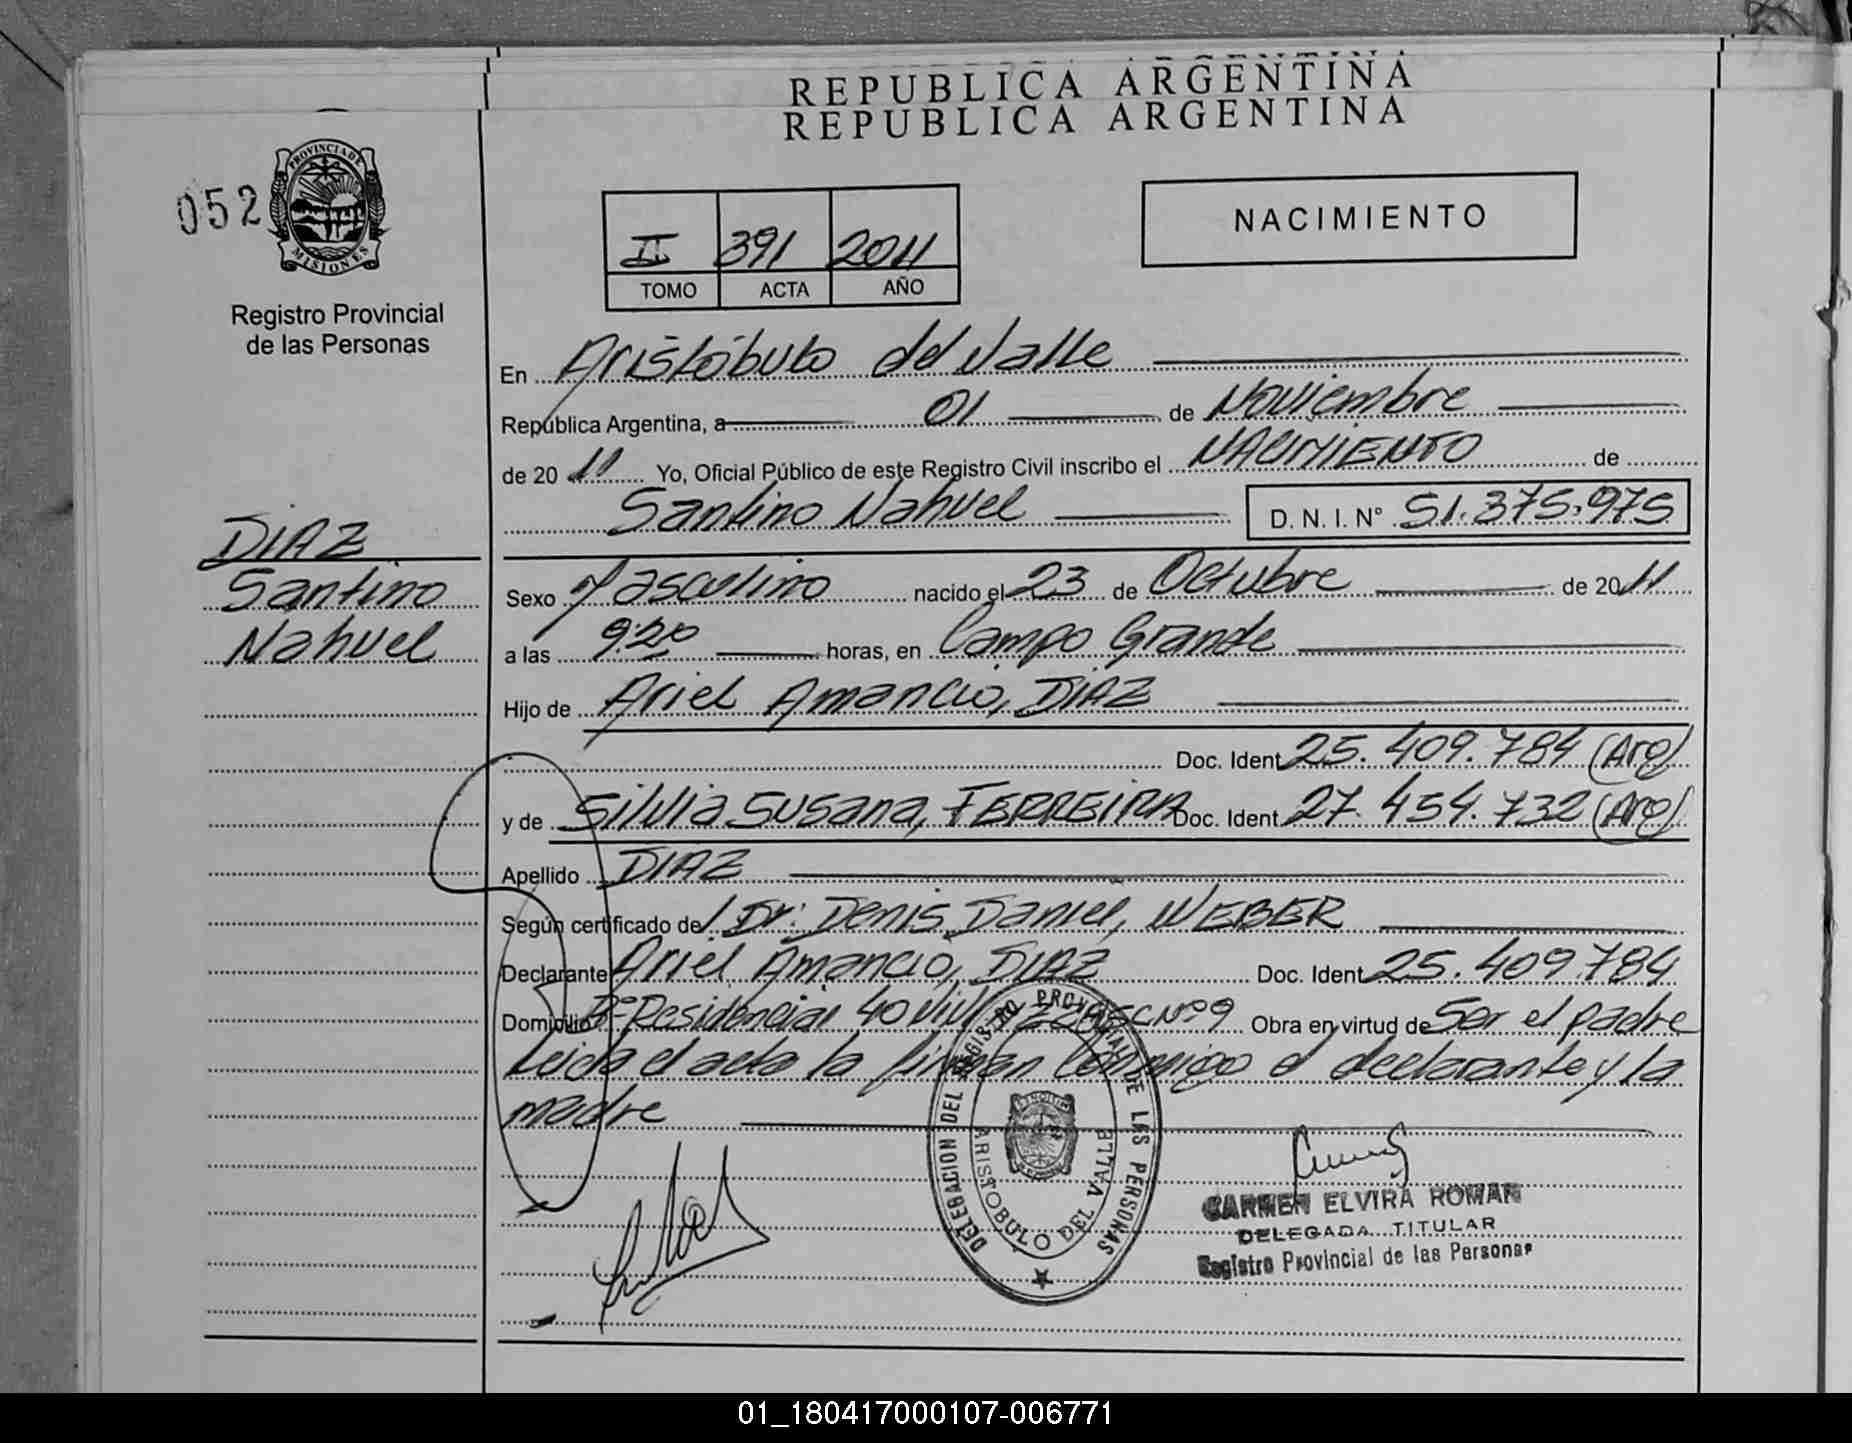 REPUBLICA ARGENTINA
REPUBLICA ARGENTINA
052
PROVINCIA DE
MISIONES
Registro Provincial
de las Personas
II 391 2011
TOMO ACTA AÑO
NACIMIENTO
En Aristóbulo del Valle
República Argentina, a 01 de Noviembre
de 20 11 Yo, Oficial Público de este Registro Civil inscribo el NACIMIENTO de
Santino Nahuel D. N. I. N° 51.375.975
DIAZ
Santino
Nahuel
Sexo Masculino nacido el 23 de Octubre de 2011
a las 9:20 horas, en Campo Grande
Hijo de Ariel Amancio, DIAZ
Doc. Ident 25.409.784 (Arg)
y de Silvia Susana, FERREIRA Doc. Ident 27.454.732 (Arg)
Apellido DIAZ
Según certificado de Dr: Denis Daniel, WEBER
Declarante Ariel Amancio, DIAZ Doc. Ident 25.409.784
Domicilio B° Residencial 40 Viv. N° 9 Obra en virtud de Ser el padre
Leida el acta la firman conmigo el declarante y la
madre
DELEGACION DEL REGISTRO PROVINCIAL DE LAS PERSONAS
ARISTOBULO DEL VALLE
CARMEN ELVIRA ROMAN
DELEGADA TITULAR
Registro Provincial de las Personas
01_180417000107-006771